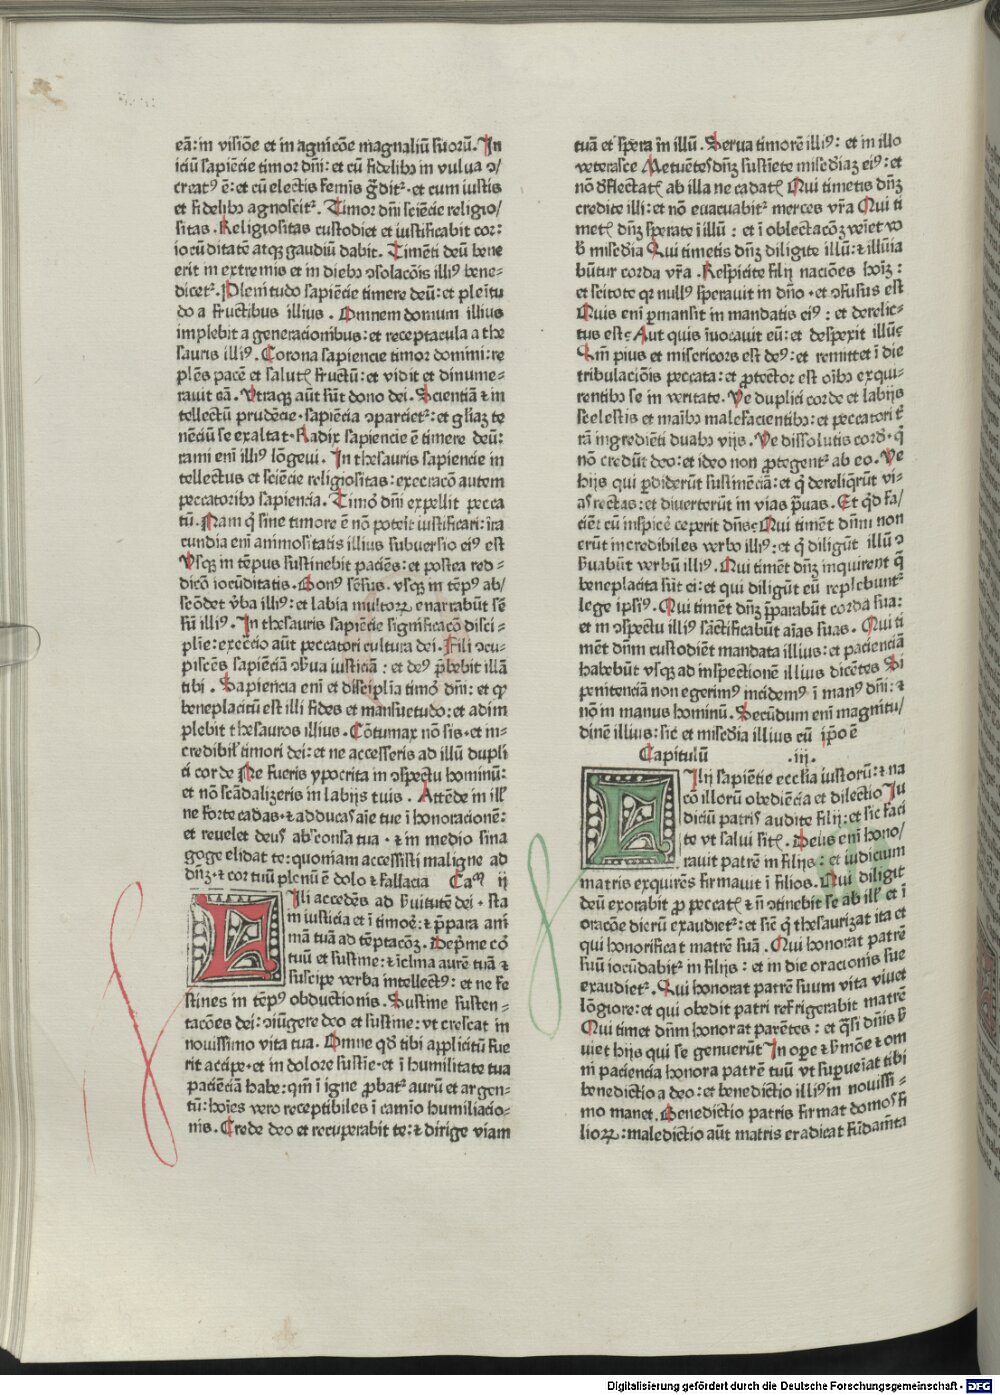 eā: in visiōe et in agnicōe magnaliū suorū. In
iciū sapiēcie timor dn̄i: et cū fidelibꝫ in vulua ꝯ/
creatꝰ ē: et cū electis femis g̃dit᷑ · et cum iustis
et fidelibꝫ agnoscit᷑. Timor dn̄i sciēcie religio/
sitas. Religiositas custodiet et iustificabit cor:
iocūditatē atqꝫ gaudiū dabit. Timēti deū bene
erit in extremis et in diebꝫ ꝯsolacōis illiꝰ bene-
dicet᷑. Plenitudo sapiēcie timere deū: et pleītu
do a fructibus illius. Omnem domum illius
implebit a generacionibus: et receptacula a the
sauris illiꝰ. Corona sapiencie timor domini: re
plēs pacē et salutꝭ fructū: et vidit et dinume-
rauit eā. Vtraqꝫ aūt sūt dono dei. Scientiā ⁊ in
tellectū prudēcie · sapiēcia ꝯparciet᷑: et gl̄iaꝫ te
nēciū se exaltat · Radix sapiencie ē timere deū:
rami enī illiꝰ lōgeui. In thesauris sapiencie in
tellectus et sciēcie religiositas: execracō autem
peccatoribꝫ sapiencia. Timoꝛ dn̄i expellit pecca
tū. Nam q̇ sine timore ē nō poteīt iustificari: ira
cundia enī animositatis illius subuersio eiꝰ est
Vsqꝫ in tēpus sustinebit paciēs: et postea red-
dicō iocūditatis. Bonꝰ sēsus. vsqꝫ in tēpꝰ ab/
scōdet v̄ba illiꝰ: et labia multoꝝ enarrabūt sē
sū illiꝰ. In thesauris sapiēcie significacō disci-
plīe: execr̄cio aūt peccatori cultura dei. Fili ꝯcu-
piscēs sapiēciā ꝯẜua iusticiā: et deꝰ p̄bebit illā
tibi. Sapiencia enī et disciplīa timoꝛ dn̄i: et qd̓
beneplacitū est illi fides et mansuetudo: et adim
plebit thesauros illius. Cōtumax nō sis · et in-
credibil̓ timori dei: et ne accesseris ad illū dupli
ti corde Ne fueris ypocrita in ꝯspectu hominū:
et nō scādalizeris in labijs tuis. Attēde in ill̓
ne forte cadas · ⁊ adducas aīe tue ī honoracionē:
et reuelet deus absconsa tua · ⁊ in medio sina
goge elidat te: quoniam accessisti maligne ad
dn̄ꝫ · ⁊ cor tuū plenū ē dolo ⁊ fallacia Caᵐ ij
Fili accedēs ad ẜuitutē dei · sta
in iusticia et ī timoꝛe: ⁊ p̄para ani
mā tuā ad tēptacōꝫ. Dep̄me cō
tuū et sustine: ⁊ īclina aurē tuā ⁊
suscipe verba intellectꝰ: et ne fe
stines in tēpꝰ obductionis. Sustine susten-
tacōes dei: ꝯiūgere deo et sustine: vt crescat in
nouissimo vita tua. Omne qd̓ tibi applicitū fue
rit accipe · et in dolore sustīe · et ī humilitate tua
paciēciā habe: qm̄ ī igne ꝓbat᷑ aurū et argen-
tū: hoīes vero receptibiles ī camīo humiliacio-
nis. Crede deo et recuperabit te: ⁊ dirige viam
tuā et spera īn illū. Serua timorē illiꝰ: et in illo
veterasce Metuētes dn̄ꝫ sustinete misediaꝫ eiꝰ: et
nō deflectatꝭ ab illa ne cadatꝭ Qui timetis dn̄ꝫ
credite illi: et nō euacuabit᷑ merces vr̄a Qui ti
metꝭ dn̄ꝫ sperate ī illū: et ī oblectacōꝫ veīet vo
bꝭ misedia Qui timetis dn̄ꝫ diligite illū: ⁊ illūīa
būtur corda vr̄a. Respicite filij naciōes hoīꝫ:
et scitote qꝛ nullꝰ sperauit in dn̄o · et ꝯfusus est
Quis enī ꝑmansit in mandatis eiꝰ: et derelic-
tus est? Aut quis īuocauit eū: et despexit illū?
Qm̄ pius et misericors est deꝰ: et remittet ī die
tribulaciōis peccata: et ꝓtector est oībꝫ exqui-
rentibꝫ se in veritate. Ve duplici corde et labijs
scelestis et maībꝫ malefacientibꝫ: et peccatori t̄
rā ingrediēti duabꝫ vijs. Ve dissolutis cord̓ · q̇
nō credūt deo: et ideo non ꝓtegent᷑ ab eo. Ve
hijs qui ꝑdiderūt sustinēciā: et q̇ dereliq̄rūt vi-
as rectas: et diuerterūt in vias p̄uas. Et qd̓ fa/
ciēt cū inspicē ceperit dn̄s? Qui timēt dn̄m non
erūt incredibiles verbo illiꝰ: et q̇ diligūt illū ꝯ
ẜuabūt verbū illiꝰ. Qui timēt dn̄ꝫ inquirent q̄
beneplacita sūt ei: et qui diligūt eū replebunt᷑
lege ipsiꝰ. Qui timēt dn̄ꝫ p̄parabūt corda sua:
et in ꝯspectu illiꝰ sāctificabūt aīas suas. Qui ti
mēt dn̄m custodiēt mandata illius: et pacienciā
habebūt vsqꝫ ad inspectionē illius dicētes Si
penitenciā non egerimꝰ incidemꝰ ī manꝰ dn̄i: ⁊
nō in manus hominū. Secūdum enī magnitu/
dinē illius: sic et misedia illius cū ip̄o ē
Capitulū .iij.
Filij sapiētie ecclīa iustorū: ⁊ na
cō illorū obediēcia et dilectio Iu
diciū patris audite filij: et sic faci
te vt salui sitꝭ. Deus enī hono/
rauit patrē in filijs: et iudicium
matris exquirēs firmauit ī filios. Qui diligit
deū exorabit ꝓ peccatꝭ ⁊ ꝯtinebit se ab ill̓ et ī
oracōe dierū exaudiet᷑: et sic̄ q̇ thesaurizat ita et
qui honorificat matrē suā. Qui honorat patrē
suū iocūdabit᷑ in filijs: et in die oracionis sue
exaudiet᷑. Qui honorat patrē suum vita viuet
lōgiore: et qui obedit patri refrigerabit matrē
Qui timet dn̄m honorat parētes: et q̄si dn̄is ẜ
uiet hijs qui se genuerūt In oꝑe ⁊ ẜmōe ⁊ om
ni paciencia honora patrē tuū vt supueīat tibi
benedictio a deo: et benedictio illiꝰ in nouissi-
mo manet. Benedictio patris firmat domos fi
lioꝝ: maledictio aūt matris eradicat fūdam̄ta
Digitalisierung gefördert durch die Deutsche Forschungsgemeinschaft - DFG